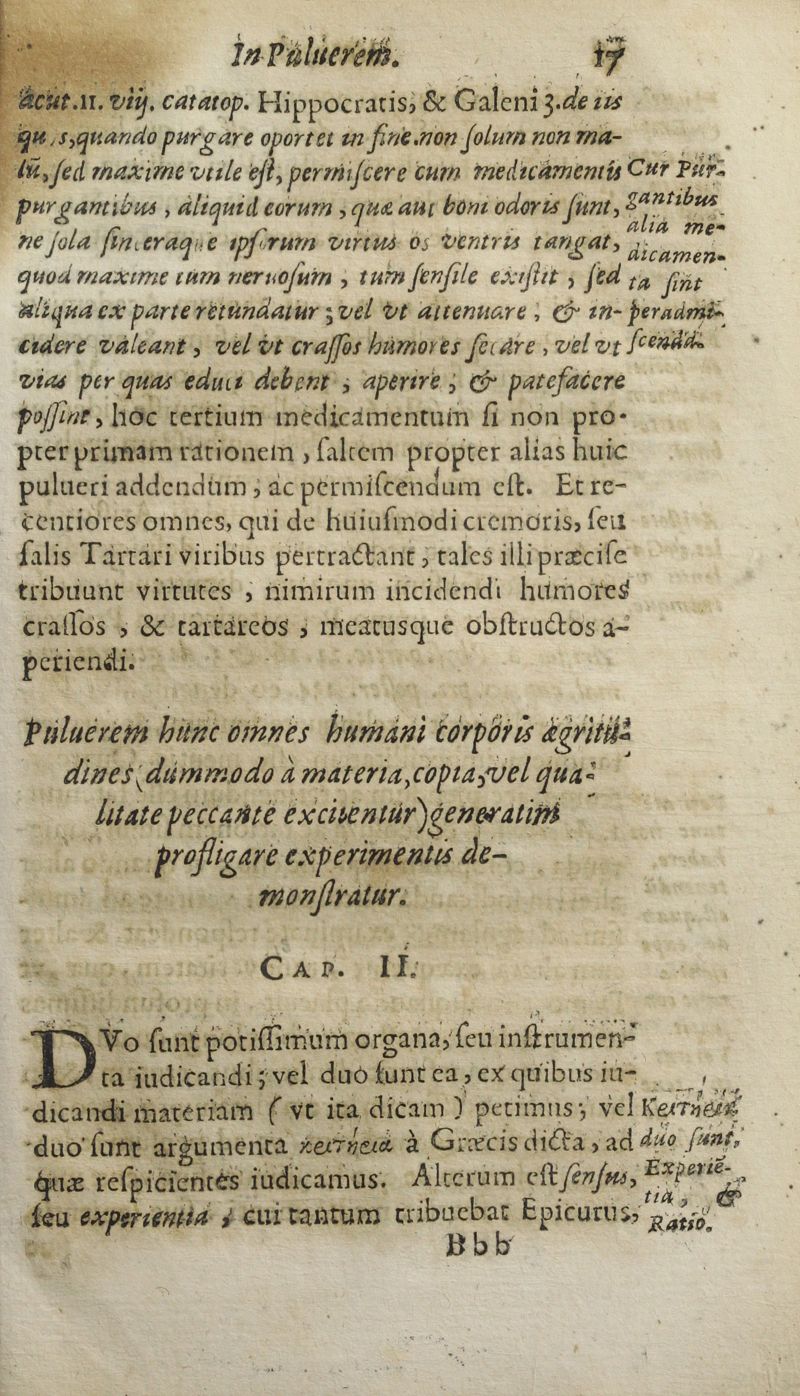 In Puluerem. 17
acut. 11. viij. catatop. Hippocratis, & Galeni 3. de iis
quando purgare oportet in fine. non ſolum non ma-
lũ, ſed maxime vtile eſt, permiſcere cum medicamentis
purgantibus, aliquid eorum, quæ aut boni odoris ſunt,
ne ſola ipſorum virtus os ventris tangat,
quod maxime tum neruoſum, tum ſenſile exiſtit, ſed
aliqua ex parte retundatur; vel vt attenuare, & in-
cidere valeant, vel vt craſſos humores ſecare, vel vt
vias per quas educi debent, aperire, & patefacere
poſſint, hoc tertium medicamentum ſi non pro-
pter primam rationem, ſaltem propter alias huic
pulueri addendum, ac permiſcendum eſt. Et re-
centiores omnes, qui de huiuſmodi cremoris, ſeu
ſalis Tartari viribus pertractant, tales illi præciſe
tribuunt virtutes, nimirum incidendi humores
craſſos, & tartareos, meatusque obſtructos a-
periendi.
Cur Pur-
gantibus
alia me-
dicamen-
ta ſint
peradmi-
ſcenda.
Puluerem hunc omnes humani corporis ægritu-
dines (dummodo à materia, copia, vel qua-
litate peccante excitentur) generatim
profligare experimentis de-
monſtratur.
CAP. II.
DVo ſunt potiſſimum organa, ſeu inſtrumen-
ta iudicandi; vel duo ſunt ea, ex quibus iu-
dicandi materiam (vt ita dicam) petimus; vel
duo ſunt argumenta κριτήρια à Græcis dicta, ad
quæ reſpicientes iudicamus. Alterum eſt ſenſus,
ſeu experientia; cui tantum tribuebat Epicurus,
Κριτήρια
duo ſunt,
Experiē-
tia, &
Ratio.
Bbb